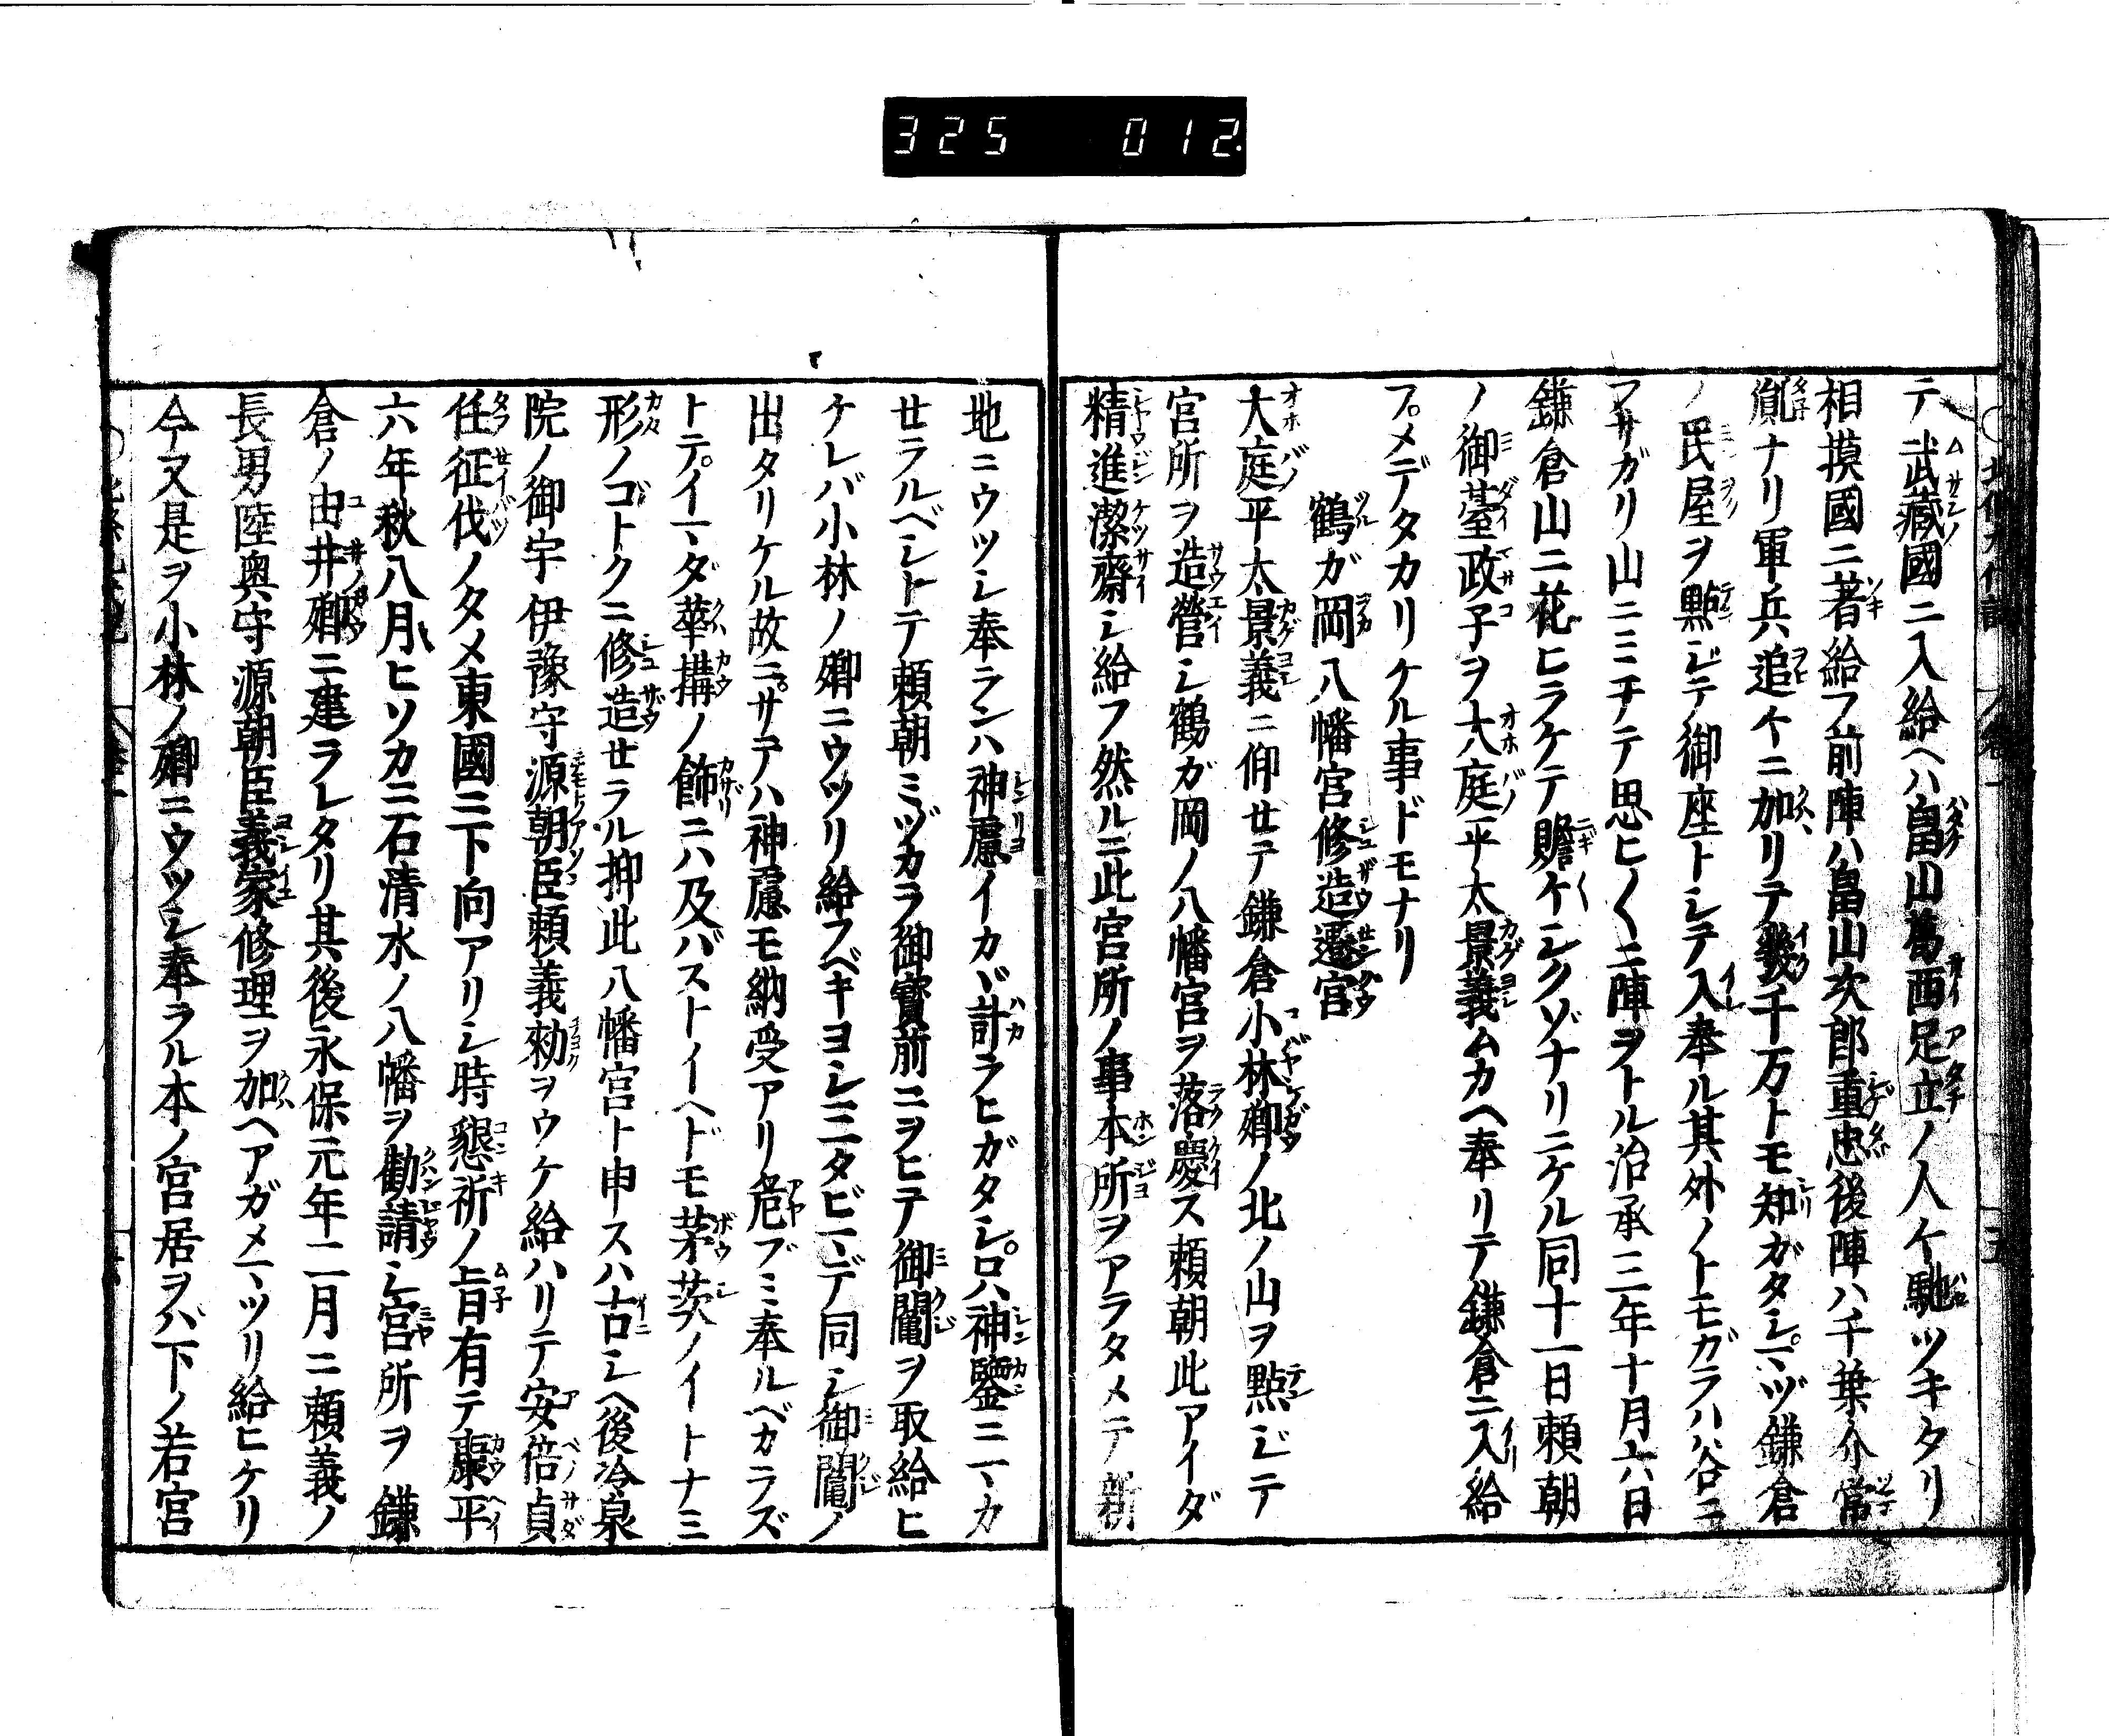 325 012.
テ武藏國ニ入給ヘハ畠山葛西足立ノ人々馳ツキタリ
相摸國ニ著給フ前陣ハ畠山次郎重忠後陣ハ千葉介常
胤ナリ軍兵追々ニ加リテ幾千万トモ知ガタシ。マヅ鎌倉
ノ民屋ヲ點ジテ御座トシテ入奉ル其外ノトモガラハ谷ニ
フサガリ山ニミチテ思ヒ〱ニ陣ヲトル治承三年十月六日
鎌倉山ニ花ヒラケテ贍々シクゾナリニケル同十一日頼朝
ノ御臺政子ヲ大庭平太景義ムカヘ奉リテ鎌倉ニ入給
フ。メデタカリケル事ドモナリ
鶴ガ岡八幡宮修造遷宮
大庭平太景義ニ仰セテ鎌倉小林郷ノ北ノ山ヲ點ジテ
宮所ヲ造營シ鶴ガ岡ノ八幡宮ヲ落慶ス頼朝此アイダ
精進潔齋シ給フ然ルニ此宮所ノ事本所ヲアラタメテ新
地ニウツシ奉ランハ神慮イカヾ計ラヒガタシ。只神鑒ニマカ
セラルベシトテ頼朝ミヅカラ御寳前ニヲヒテ御鬮ヲ取給ヒ
ケレバ小林ノ郷ニウツリ給フベキヨシ三タビマデ同シ御鬮ノ
出タリケル故ニ。サテハ神慮モ納受アリ危ブミ奉ルベカラズ
トテ。イマダ華構ノ飾ニハ及バストイヘドモ茅茨ノイトナミ
形ノゴトクニ修造セラル抑此八幡宮ト申スハ古シヘ後冷泉
院ノ御宇伊豫守源朝臣頼義勅ヲウケ給ハリテ安倍貞
任征伐ノタメ東國ニ下向アリシ時懇祈ノ旨有テ康平
六年秋八月ヒソカニ石清水ノ八幡ヲ勧請シ宮所ヲ鎌
倉ノ由井郷ニ建ラレタリ其後永保元年二月ニ頼義ノ
長男陸奥守源朝臣義家修理ヲ加ヘアガメマツリ給ヒケリ
今又是ヲ小林ノ郷ニウツシ奉ラル本ノ宮居ヲバ下ノ若宮